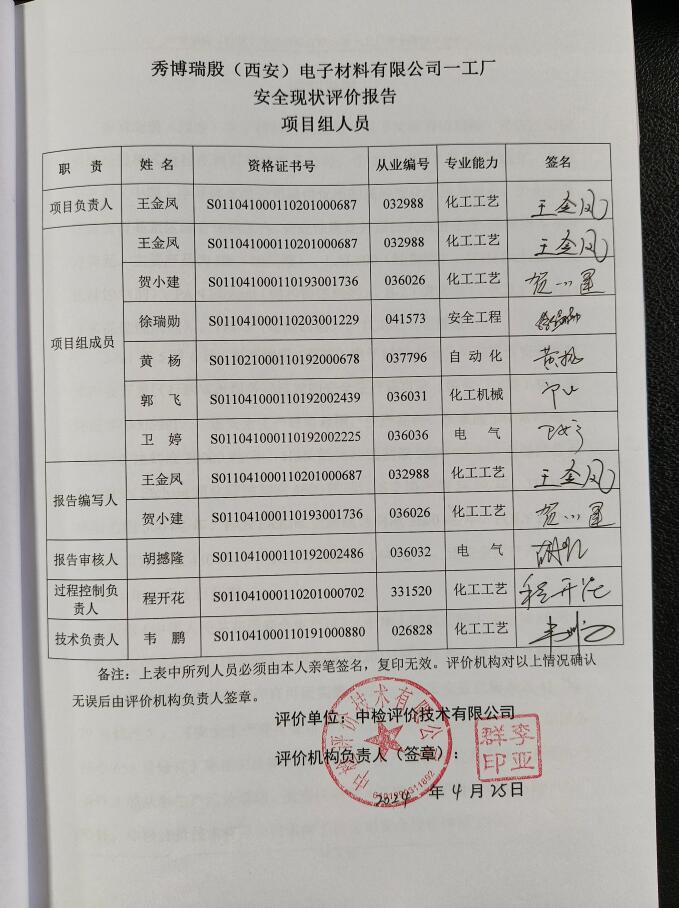 秀博瑞殷（西安）电子材料有限公司一工厂
安全现状评价报告
项目组人员
职 责 姓 名 资格证书号 从业编号 专业能力 签名
项目负责人 王金凤 S011041000110201000687 032988 化工工艺 王金凤
项目组成员 王金凤 S011041000110201000687 032988 化工工艺 王金凤
贺小建 S011041000110193001736 036026 化工工艺 贺小建
徐瑞勋 S011041000110203001229 041573 安全工程
黄 杨 S011021000110192000678 037796 自 动 化 黄杨
郭 飞 S011041000110192002439 036031 化工机械
卫 婷 S011041000110192002225 036036 电 气
报告编写人 王金凤 S011041000110201000687 032988 化工工艺 王金凤
贺小建 S011041000110193001736 036026 化工工艺 贺小建
报告审核人 胡撼隆 S011041000110192002486 036032 电 气
过程控制负责人 程开花 S011041000110201000702 331520 化工工艺 程开花
技术负责人 韦 鹏 S011041000110191000880 026828 化工工艺
备注：上表中所列人员必须由本人亲笔签名，复印无效。评价机构对以上情况确认
无误后由评价机构负责人签章。
评价单位：中检评价技术有限公司
评价机构负责人（签章）：
李亚群印
中检评价技术有限公司
2024 年 4 月 25 日